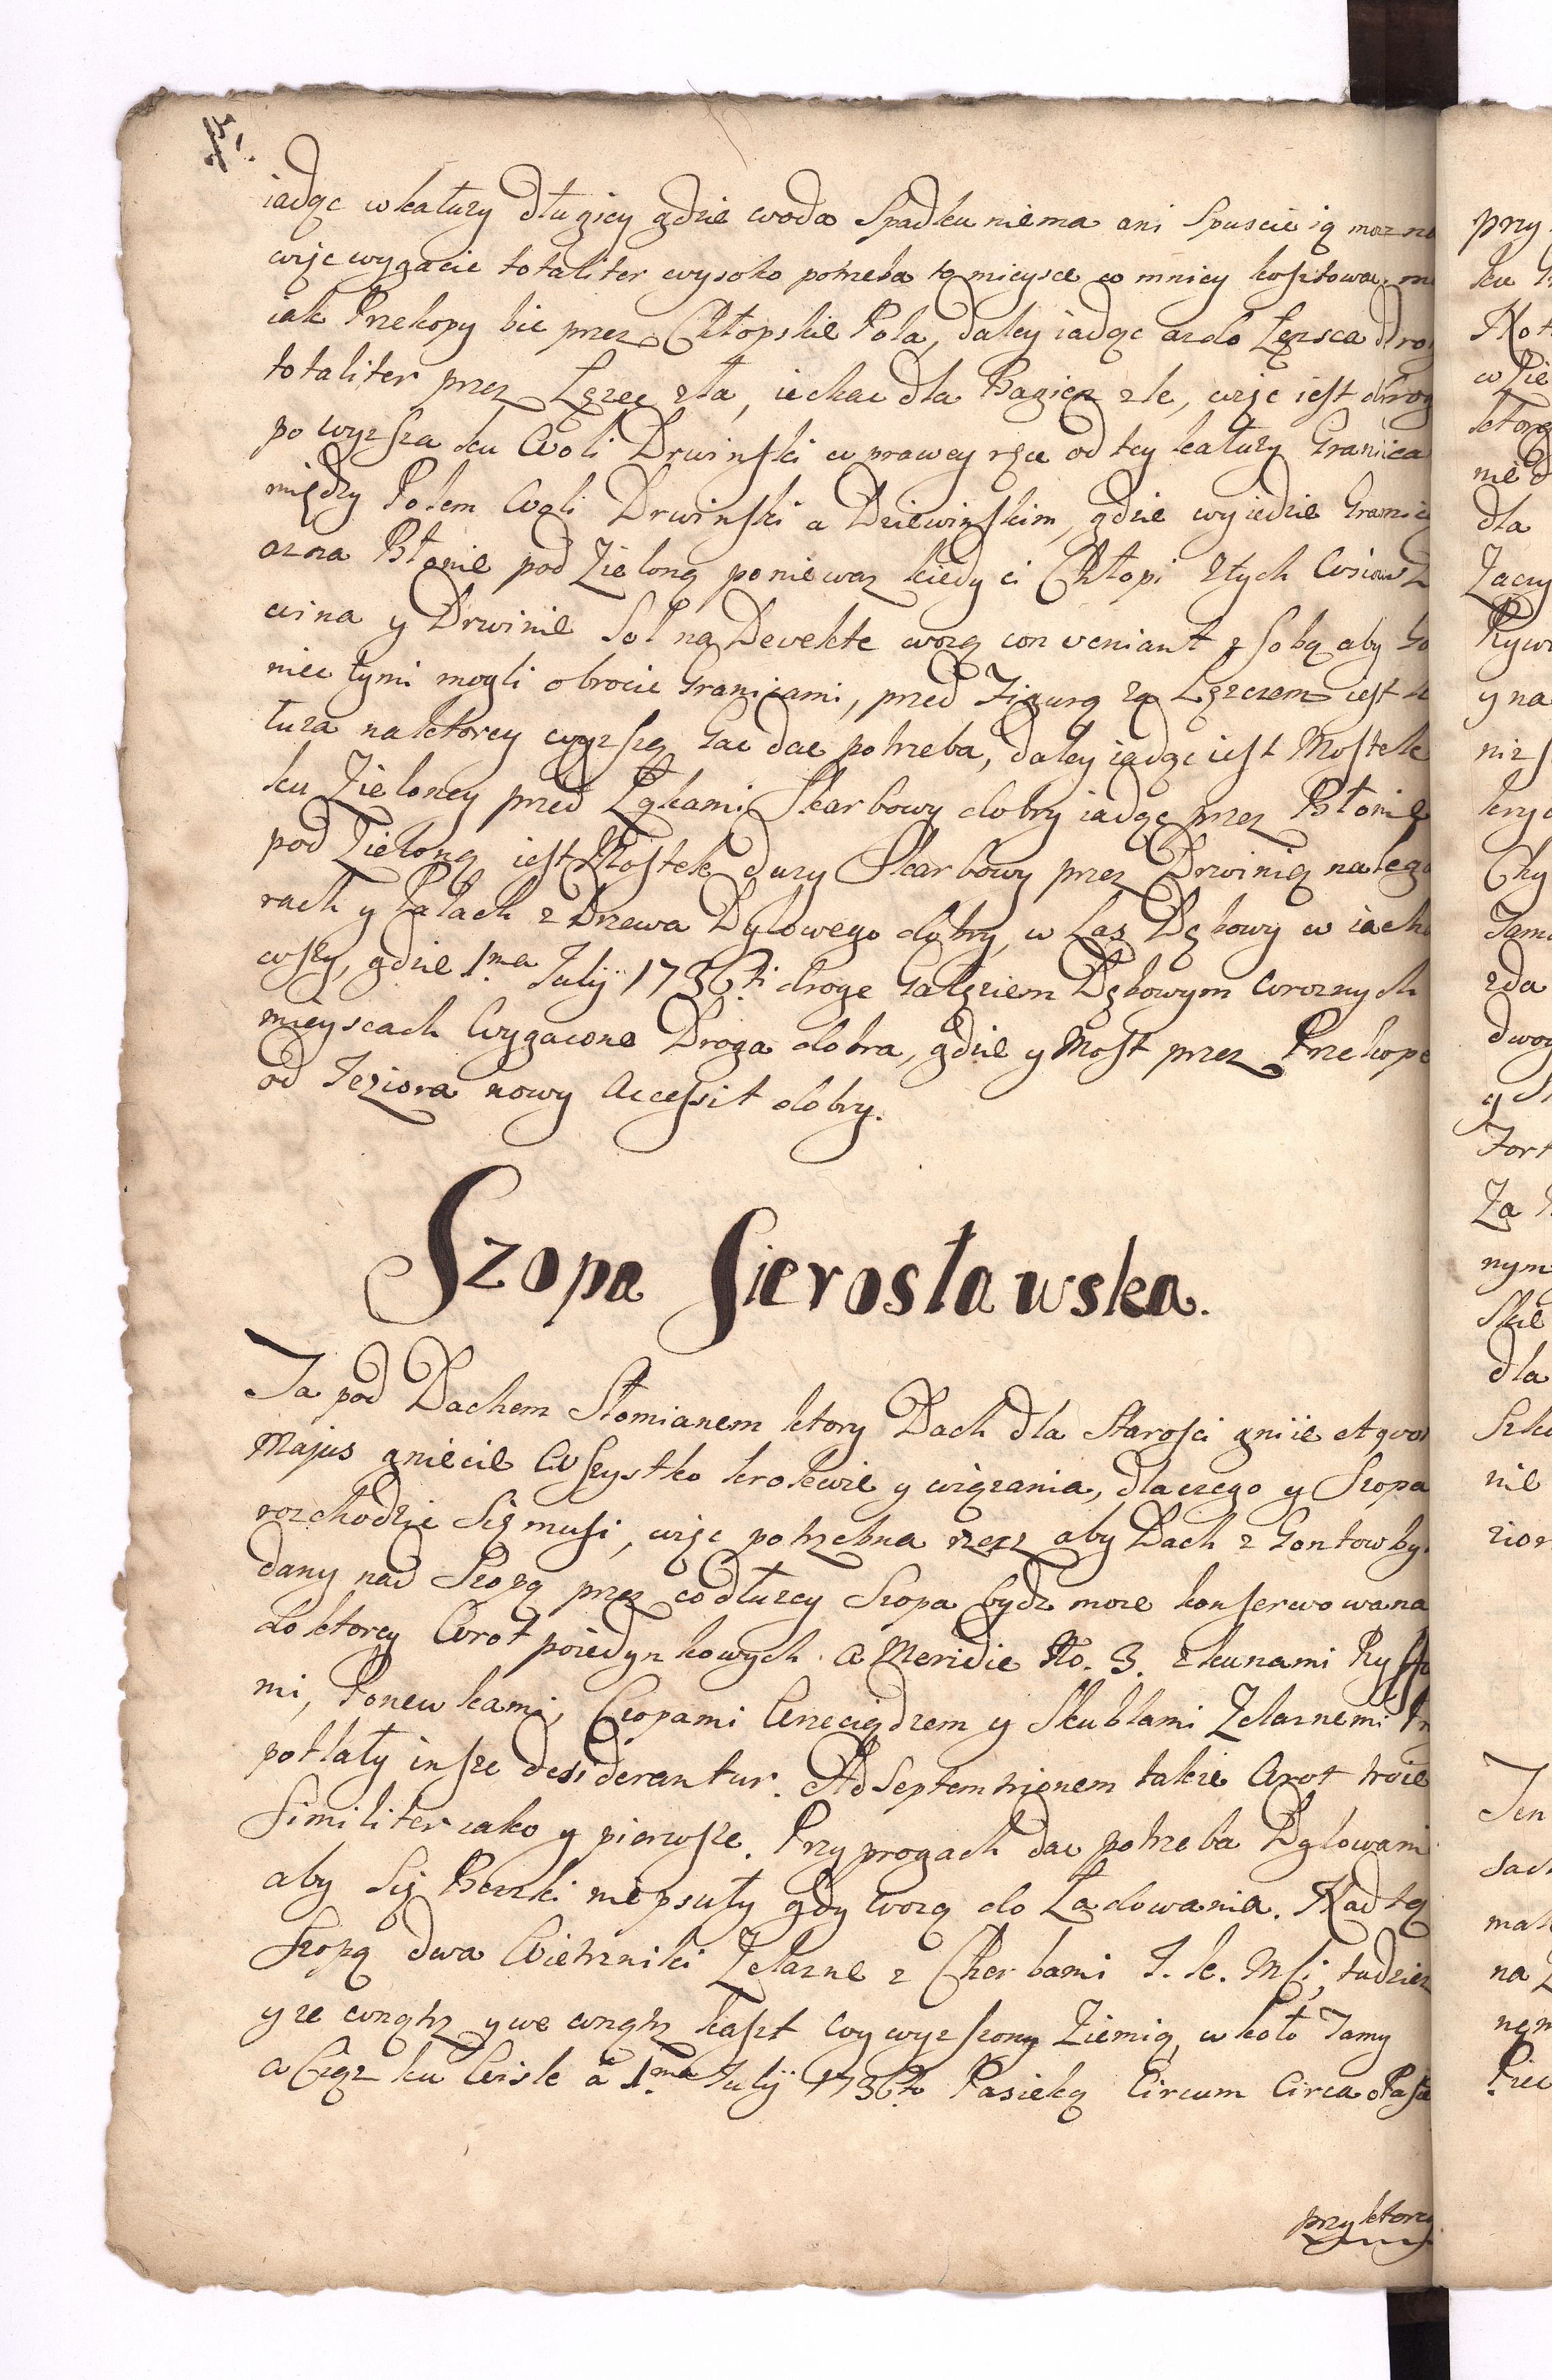 iadąc w kałuzy długiey gdzie woda Spadku niema ani Spuscic ią mozna
więc wygacic totaliter wysoko potrzeba to mieysce co mniey kosztowac
iak Przekopy bic przez Chłopskie Pola, daley iadąc az do Łęzsca dro
totaliter przez Łęzec zła, iechac dla Bagien zle, więc iest drog
powyzsza ku Woli Drwinski w prawey ręce od tey kałuzy Granica
między Polem Woli Drwinski a Dziewinskim, gdzie wyiedzie Granicą
az na Błonie pod Zieloną poniewaz kiedy ci Chłopi z tych Wsiow
wina y Drwinie Sol na Devekte wozą conveniant z sobą aby
niec tymi mogli obrocic Granicami, przed Figurą za Łęzczem iest
łuza na ktorey wyzszą Gac dac potrzeba, daley iadąc iest Mostek
ku Zieloney przed Łąkami Skarbowy dobry iadąc przez Błonie
pod Zieloną iest Mostek duzy Skarbowy przez Drwinią na lega
rach y Palach z Drzewa Dylowego dobry, w Las Dębowy wiacha
wszy, gdzie 1ma Julÿ 1736ti droge Gałęziem Dębowym w roznych
mieyscach Wygacono Droga dobra, gdzie y Most przez Przekope
od Jeziora nowy Accessit dobry.
Szopa Sierosławska.
Ta pod Dachem Słomianem ktory Dach dla Starosci gniie et quod
Majus gniecie Wszystko krokwie y wiązania, dlaczego y Szopa
rozchodzic Się musi, więc potrzebna rzecz aby Dach z Gontow by
dany nad Szopą przez co dłuzey Szopa bydz moze konserwowana
do ktorey Wrot poiedynkowych a Meridie No. 3. z kunami Ryffa
mi, Ponewkami, Czopami Wrzeciądzem y Skublami Zelaznemi
potłaty insze desiderantur. Ad Septemtrionem takze Wrot troie
Similiter iako y pierwsze. Przy progach dac potrzeba Dylowani
aby Się Beczki niepsuły gdy wozą do Ładowania. Nad tą
Szopą dwa Wietrzniki Zelazne z Cherbami J. k. Msci, tudziez
y ze wnątrz y we wnątrz kaszt wywyzszony Ziemią, w koło Jamy
a Cząz ku Wisle a 1ma Julÿ 1736to Pasieką Circum Circa oPasie
przy ktorey